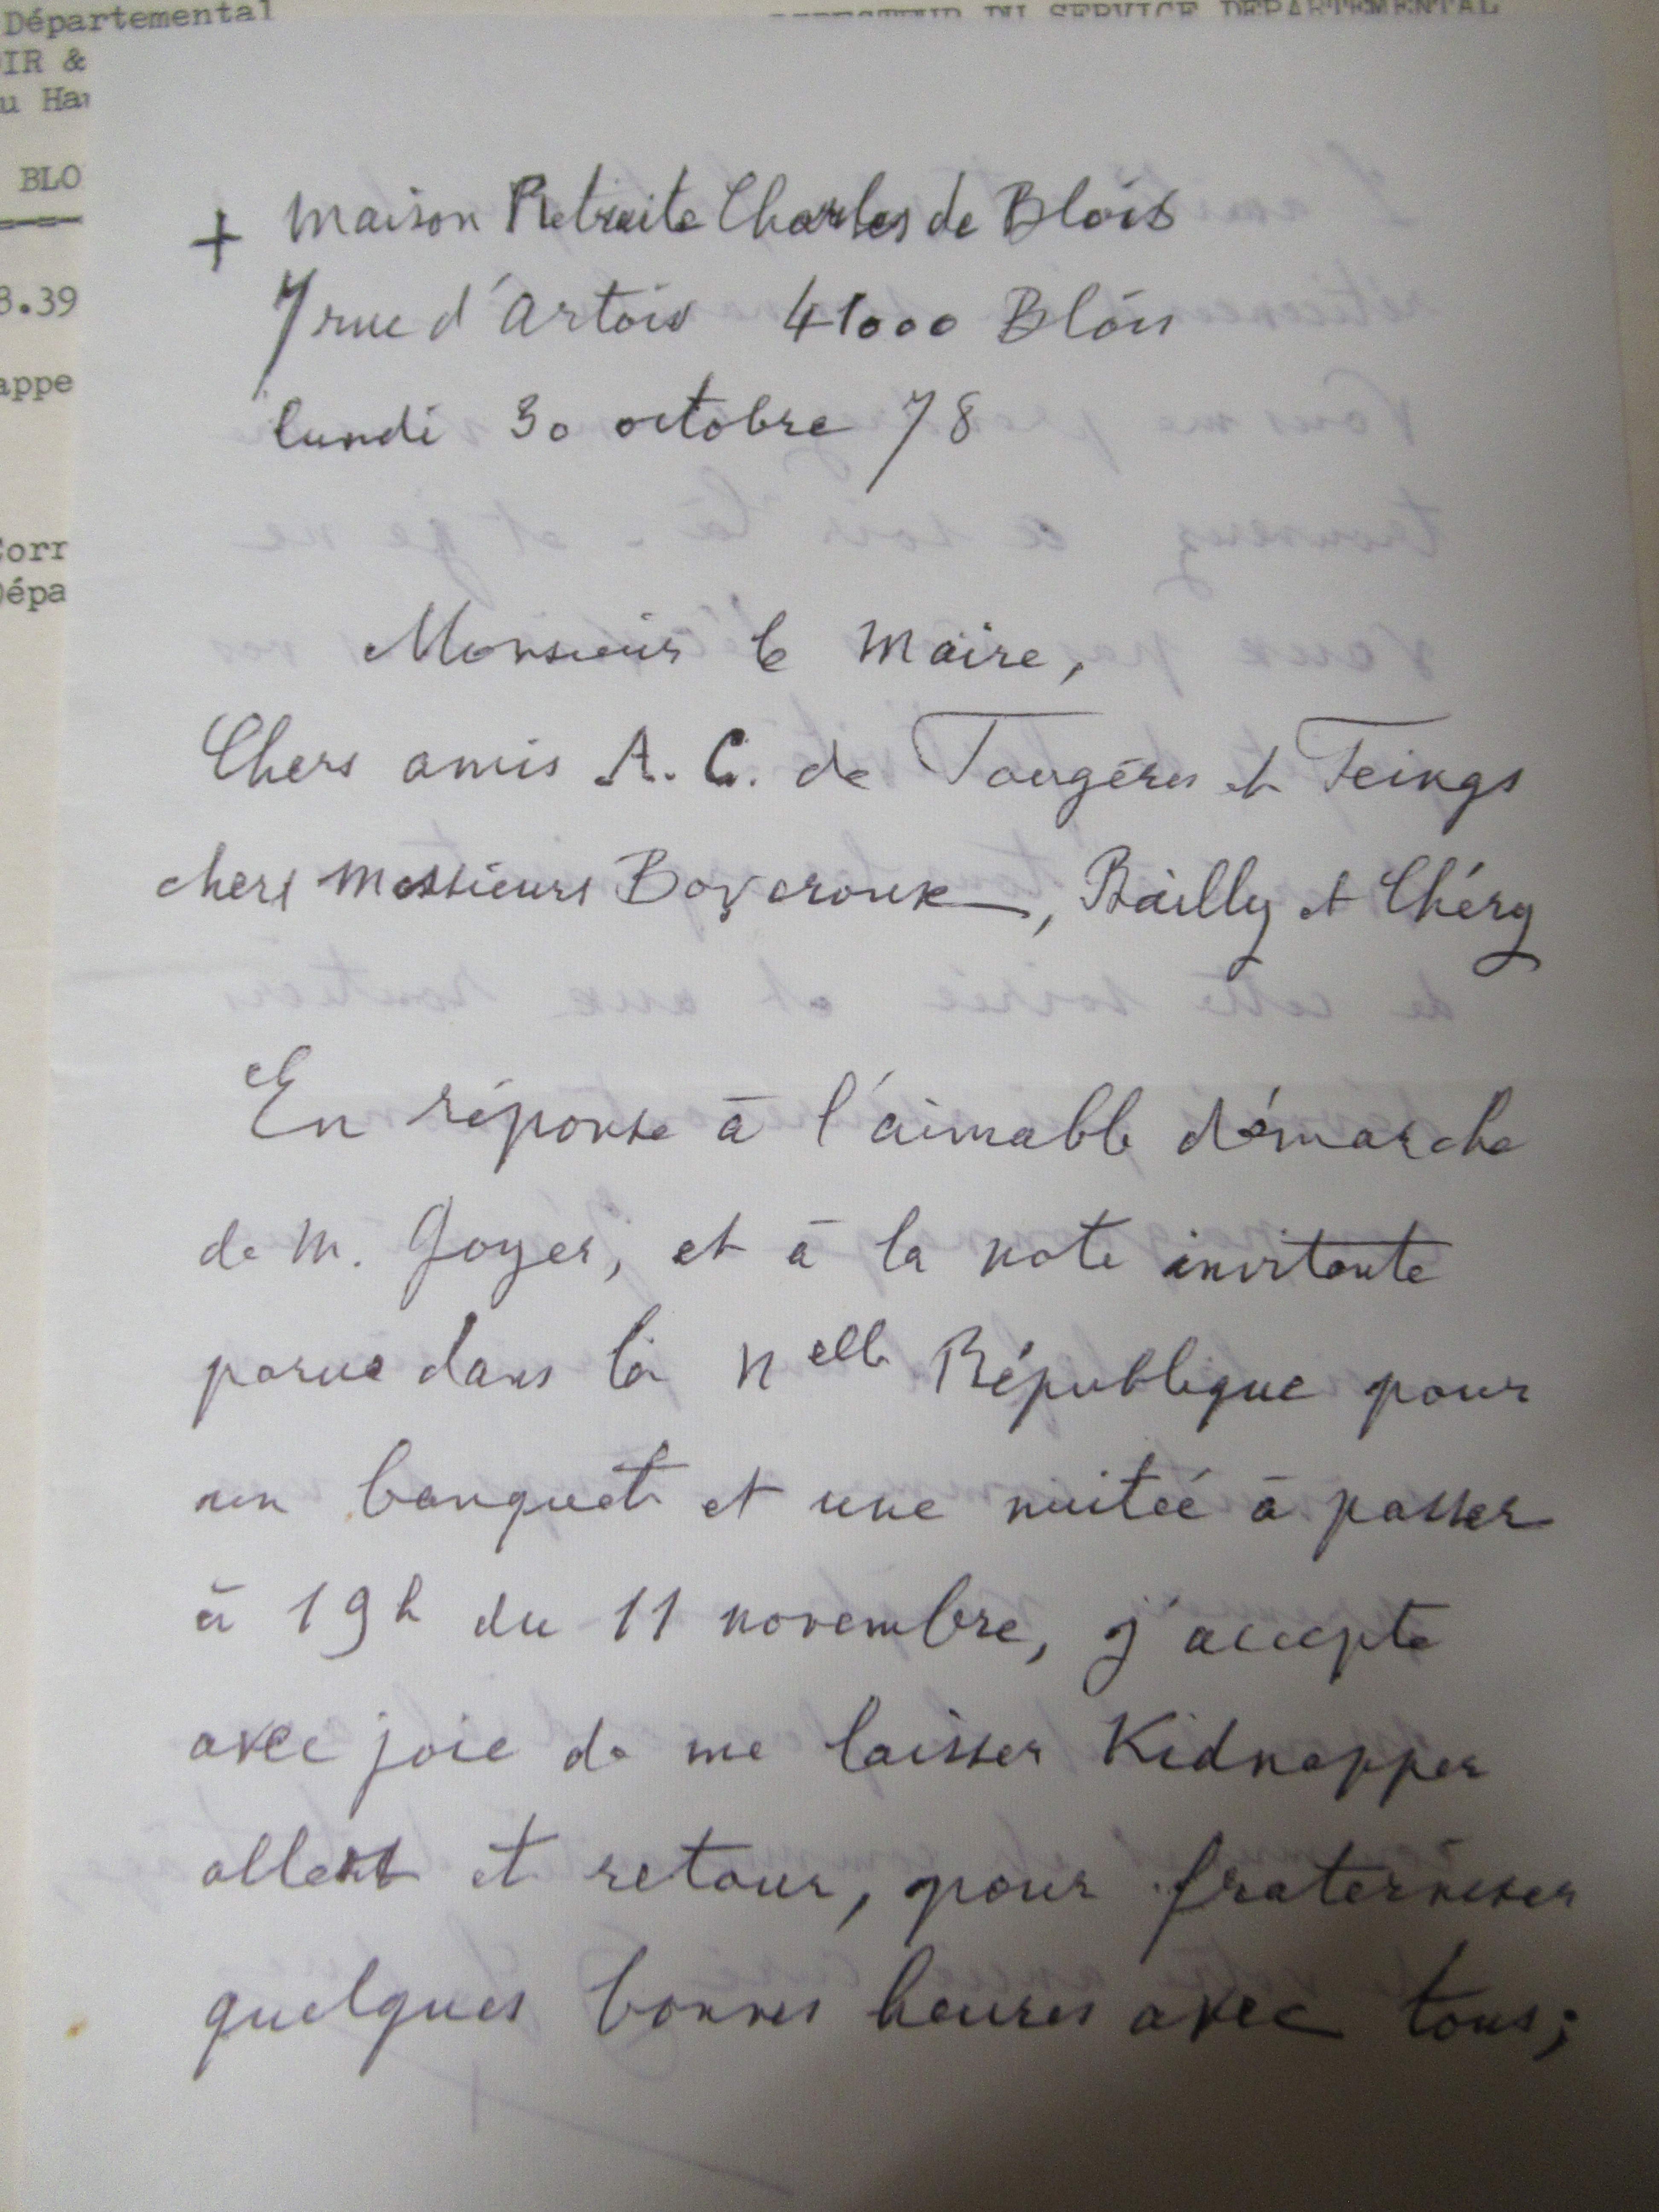 Départemental
DIRECTEUR DU SERVICE DEPARTEMENTAL
OIR &
u Ha
BLO
+ Maison Retraite Charles de Blois
7 rue d'Artois 41000 Blois
8.39
appe
lundi 30 octobre 78
Corr
Dépa
Monsieur le Maire,
Chers amis A. C. de Fougères et Feings
chers Messieurs, Bailly et Chéry
En réponse à l'aimable démarche
de M. Goyer, et à la note invitante
parue dans la Nelle République pour
un banquet et une nuitée à passer
à 19h du 11 novembre, j'accepte
avec joie de me laisser Kidnapper
allert et retour, pour fraterniser
quelques bonnes heures avec tous;